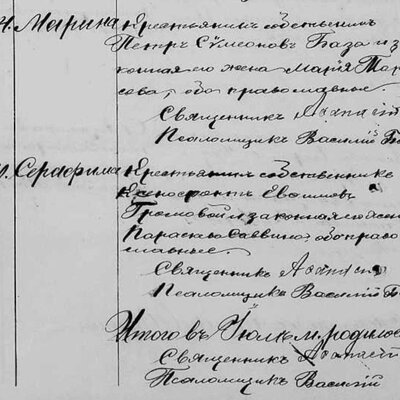 Марина Крестьянинъ собственникъ
Петръ Сѵмеоновъ База и за
конная его жена Марія Тара
сова, обо православные.
Священникъ
Псаломщикъ Василій
Серафима Крестьянинъ собственникъ
Ксенофонтъ Евѳимовъ
Громовой и законная его жена
Параскева Саввина, обо право
славные.
Священникъ
Псаломщикъ Василій
Итого въ Іюлѣ м. родилось
Священникъ
Псаломщикъ Василій